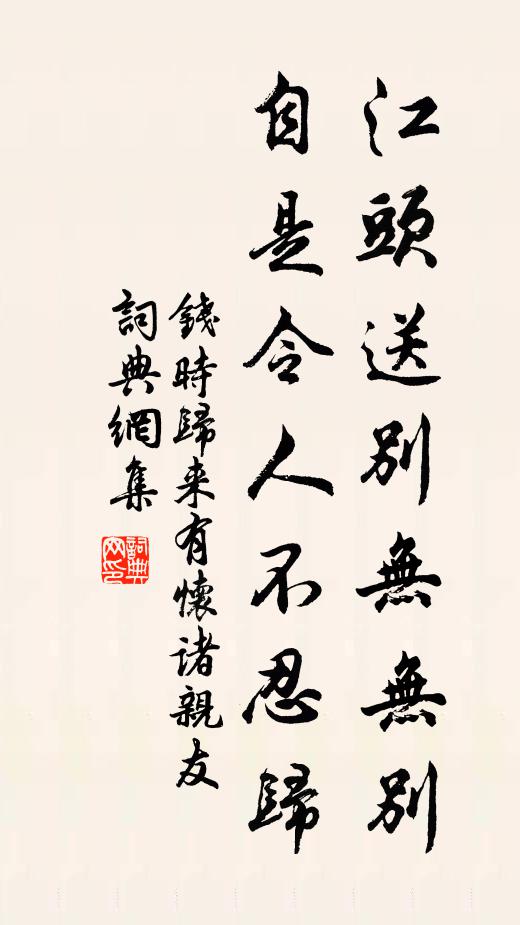 江頭送別無無別
自是令人不忍歸
錢時歸来有懷諸親友
詞典網集
詞典网印